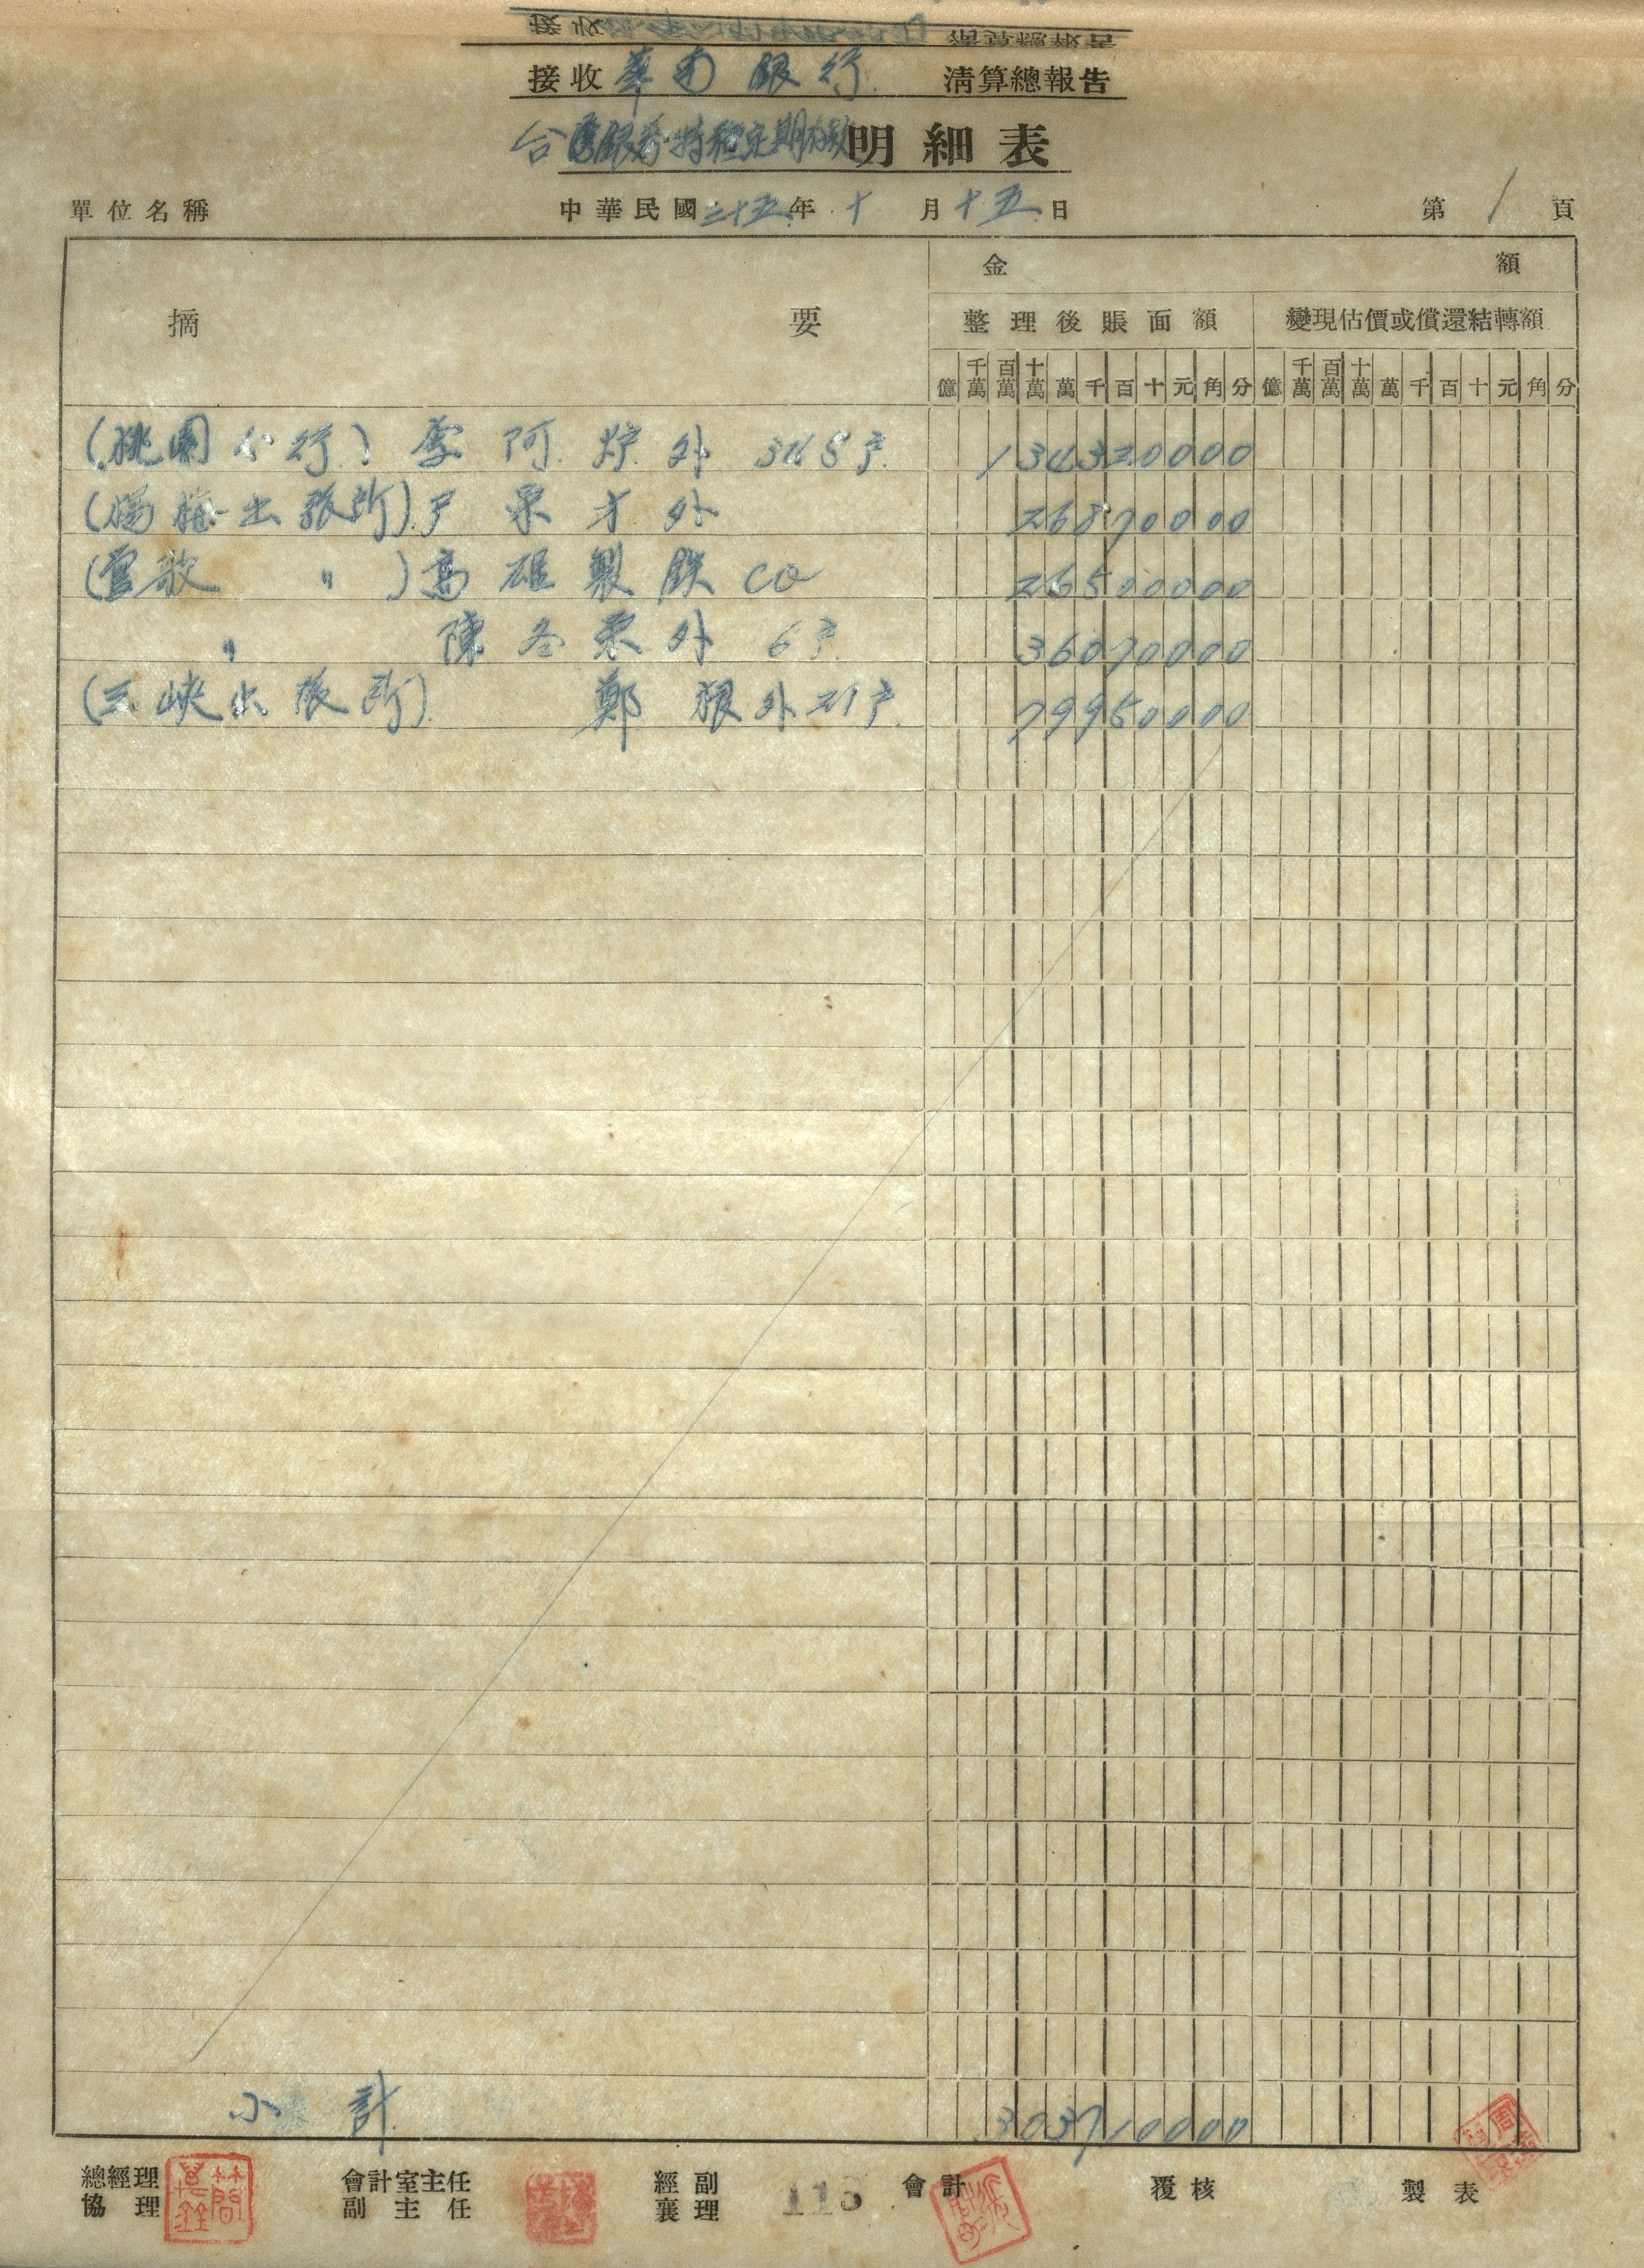 接收華南銀行 清算總報告
台灣銀券特種定期存款明細表
單位名稱 中華民國三十五年十月十五日 第1頁
摘要 金額
整理後賬面額 變現估價或償還結轉額
億 千萬 百萬 十萬 萬 千 百 十 元 角 分 億 千萬 百萬 十萬 萬 千 百 十 元 角 分
(桃園分行) 李阿炉外 348戶 134320000
(楊梅出張所) 尹 才外 26870000
(鶯歌 〃 ) 高雄製鉄CO 26500000
〃 陳冬 外 6戶 36070000
(三峽出張所) 鄭根外21戶 79950000
小計 303710000
總經理 協理 會計室主任 副主任 經副襄理 113 會計 覆核 製表